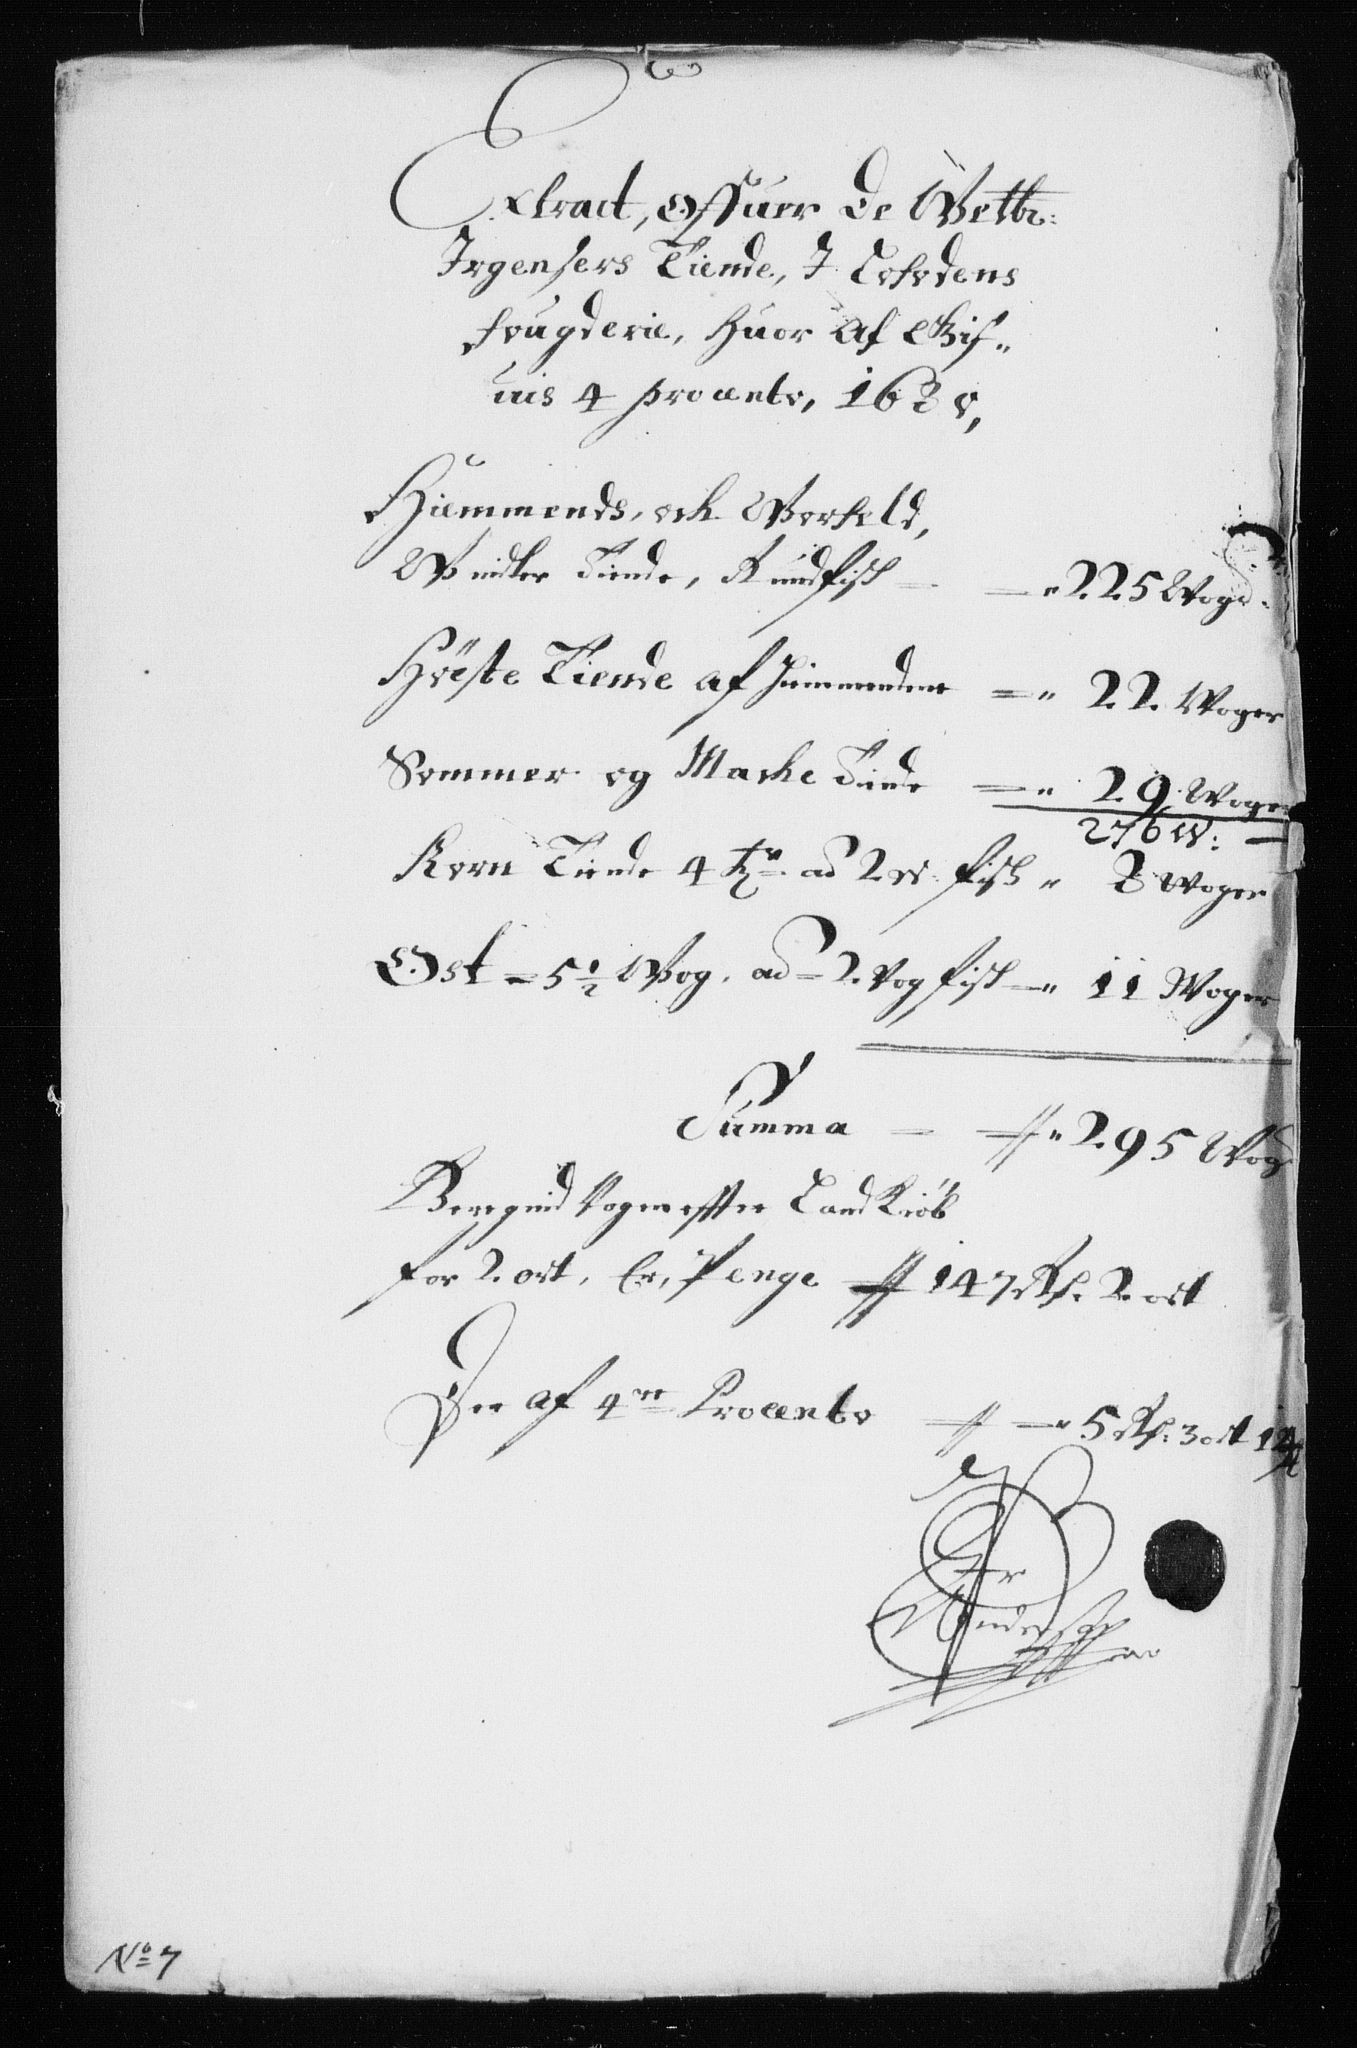 Extract, offuer de Velb:
Irgensers Tiende, I Lofodens
fougderie, huor af Gif„
uis 4 procento, 1680,
Hiemmends, och Worfeld,
Windter Tiende, Rundfisch — —„ 225 Woge:
Höste Tiende af Hiemmendene =„ 22. Woger
Sommer og Maske Tiende =„ 29. Woger
276 W: —
Korn Tiende 4 tr ad 2 W: fisch „ 8 Woger
Ost = 5 1/2 Wog. ad = 2. Vog fisch —„ 11 Woger
Summa — „ 295 Wog
Beregnid Vogen effter Landkiöb
for 2. ort, Er, Penge 147 Rd. 2. ort
Der af 4re Procento — 5 Rd: 3 ort 12
Anders
No 7